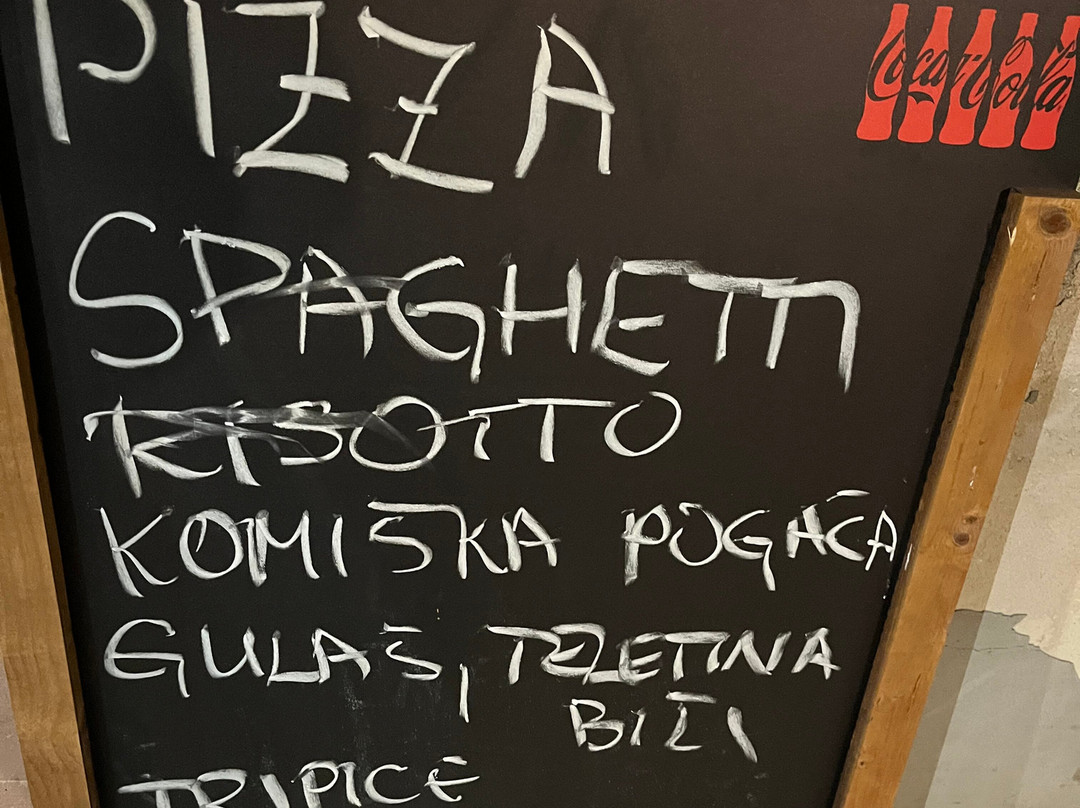 PIZZA
Coca-Cola
SPAGHETTI
RISOTTO
KOMIŠKA POGAČA,
GULAŠ, TELETINA
BIŽI,
TRIPICE